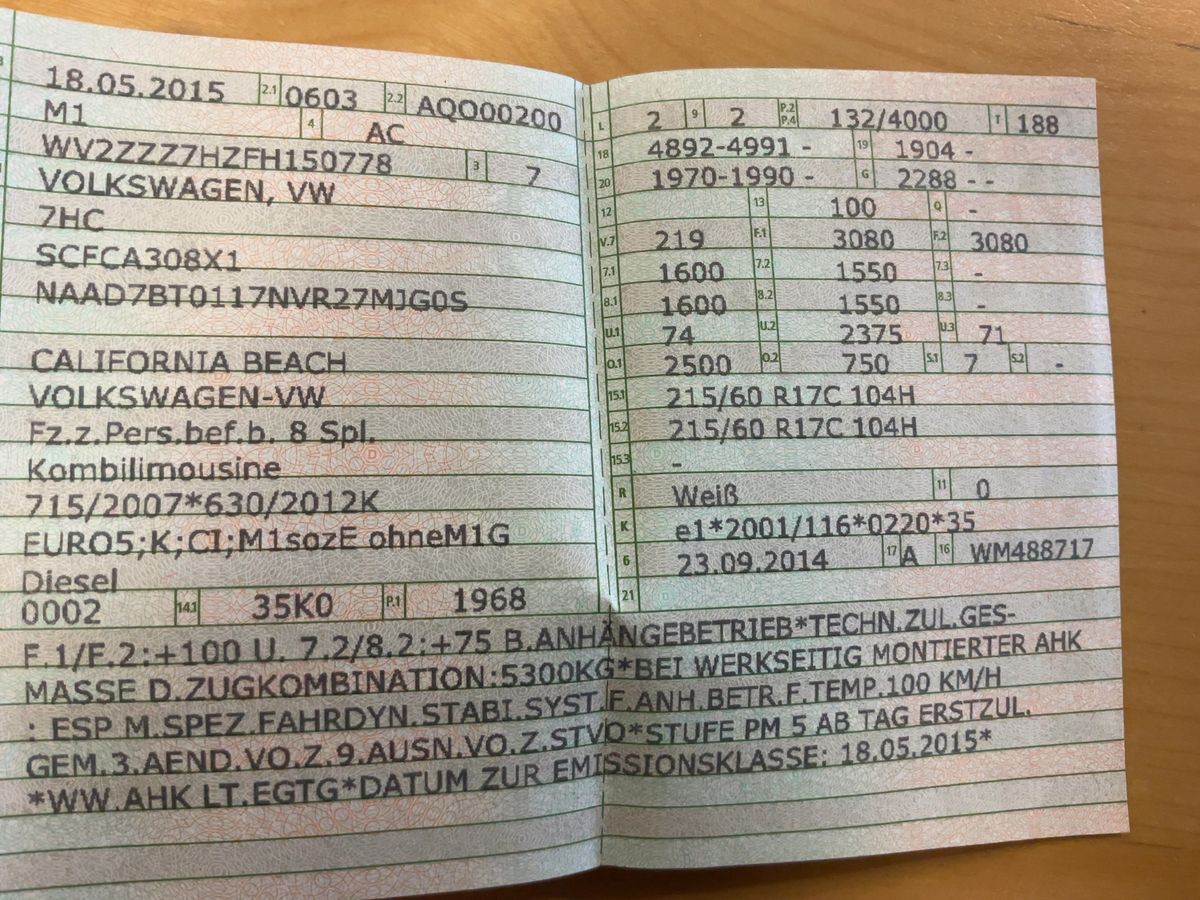 18.05.2015 2.1 0603 2.2 AQO00200
M1 4 AC
WV2ZZZ7HZFH150778 3 7
VOLKSWAGEN, VW
7HC
SCFCA308X1
NAAD7BT0117NVR27MJG0S
CALIFORNIA BEACH
VOLKSWAGEN-VW
Fz.z.Pers.bef.b. 8 Spl.
Kombilimousine
715/2007*630/2012K
EURO5;K;CI;M1sozE ohneM1G
Diesel
0002 14.1 35K0 P.1 1968
L 2 9 2 P.2 P.4 132/4000 T 188
18 4892-4991 - 19 1904 -
20 1970-1990 - G 2288 - -
12 13 100 Q -
V.7 219 F.1 3080 F.2 3080
7.1 1600 7.2 1550 7.3 -
8.1 1600 8.2 1550 8.3 -
U.1 74 U.2 2375 U.3 71
O.1 2500 O.2 750 S.1 7 S.2 -
15.1 215/60 R17C 104H
15.2 215/60 R17C 104H
15.3 -
R Weiß 11 0
K e1*2001/116*0220*35
6 23.09.2014 17 A 16 WM488717
21
F.1/F.2:+100 U. 7.2/8.2:+75 B.ANHÄNGEBETRIEB*TECHN.ZUL.GES-
MASSE D.ZUGKOMBINATION:5300KG*BEI WERKSEITIG MONTIERTER AHK
: ESP M.SPEZ.FAHRDYN.STABI.SYST.F.ANH.BETR.F.TEMP.100 KM/H
GEM.3.AEND.VO.Z.9.AUSN.VO.Z.STVO*STUFE PM 5 AB TAG ERSTZUL.
*WW.AHK LT.EGTG*DATUM ZUR EMISSIONSKLASSE: 18.05.2015*